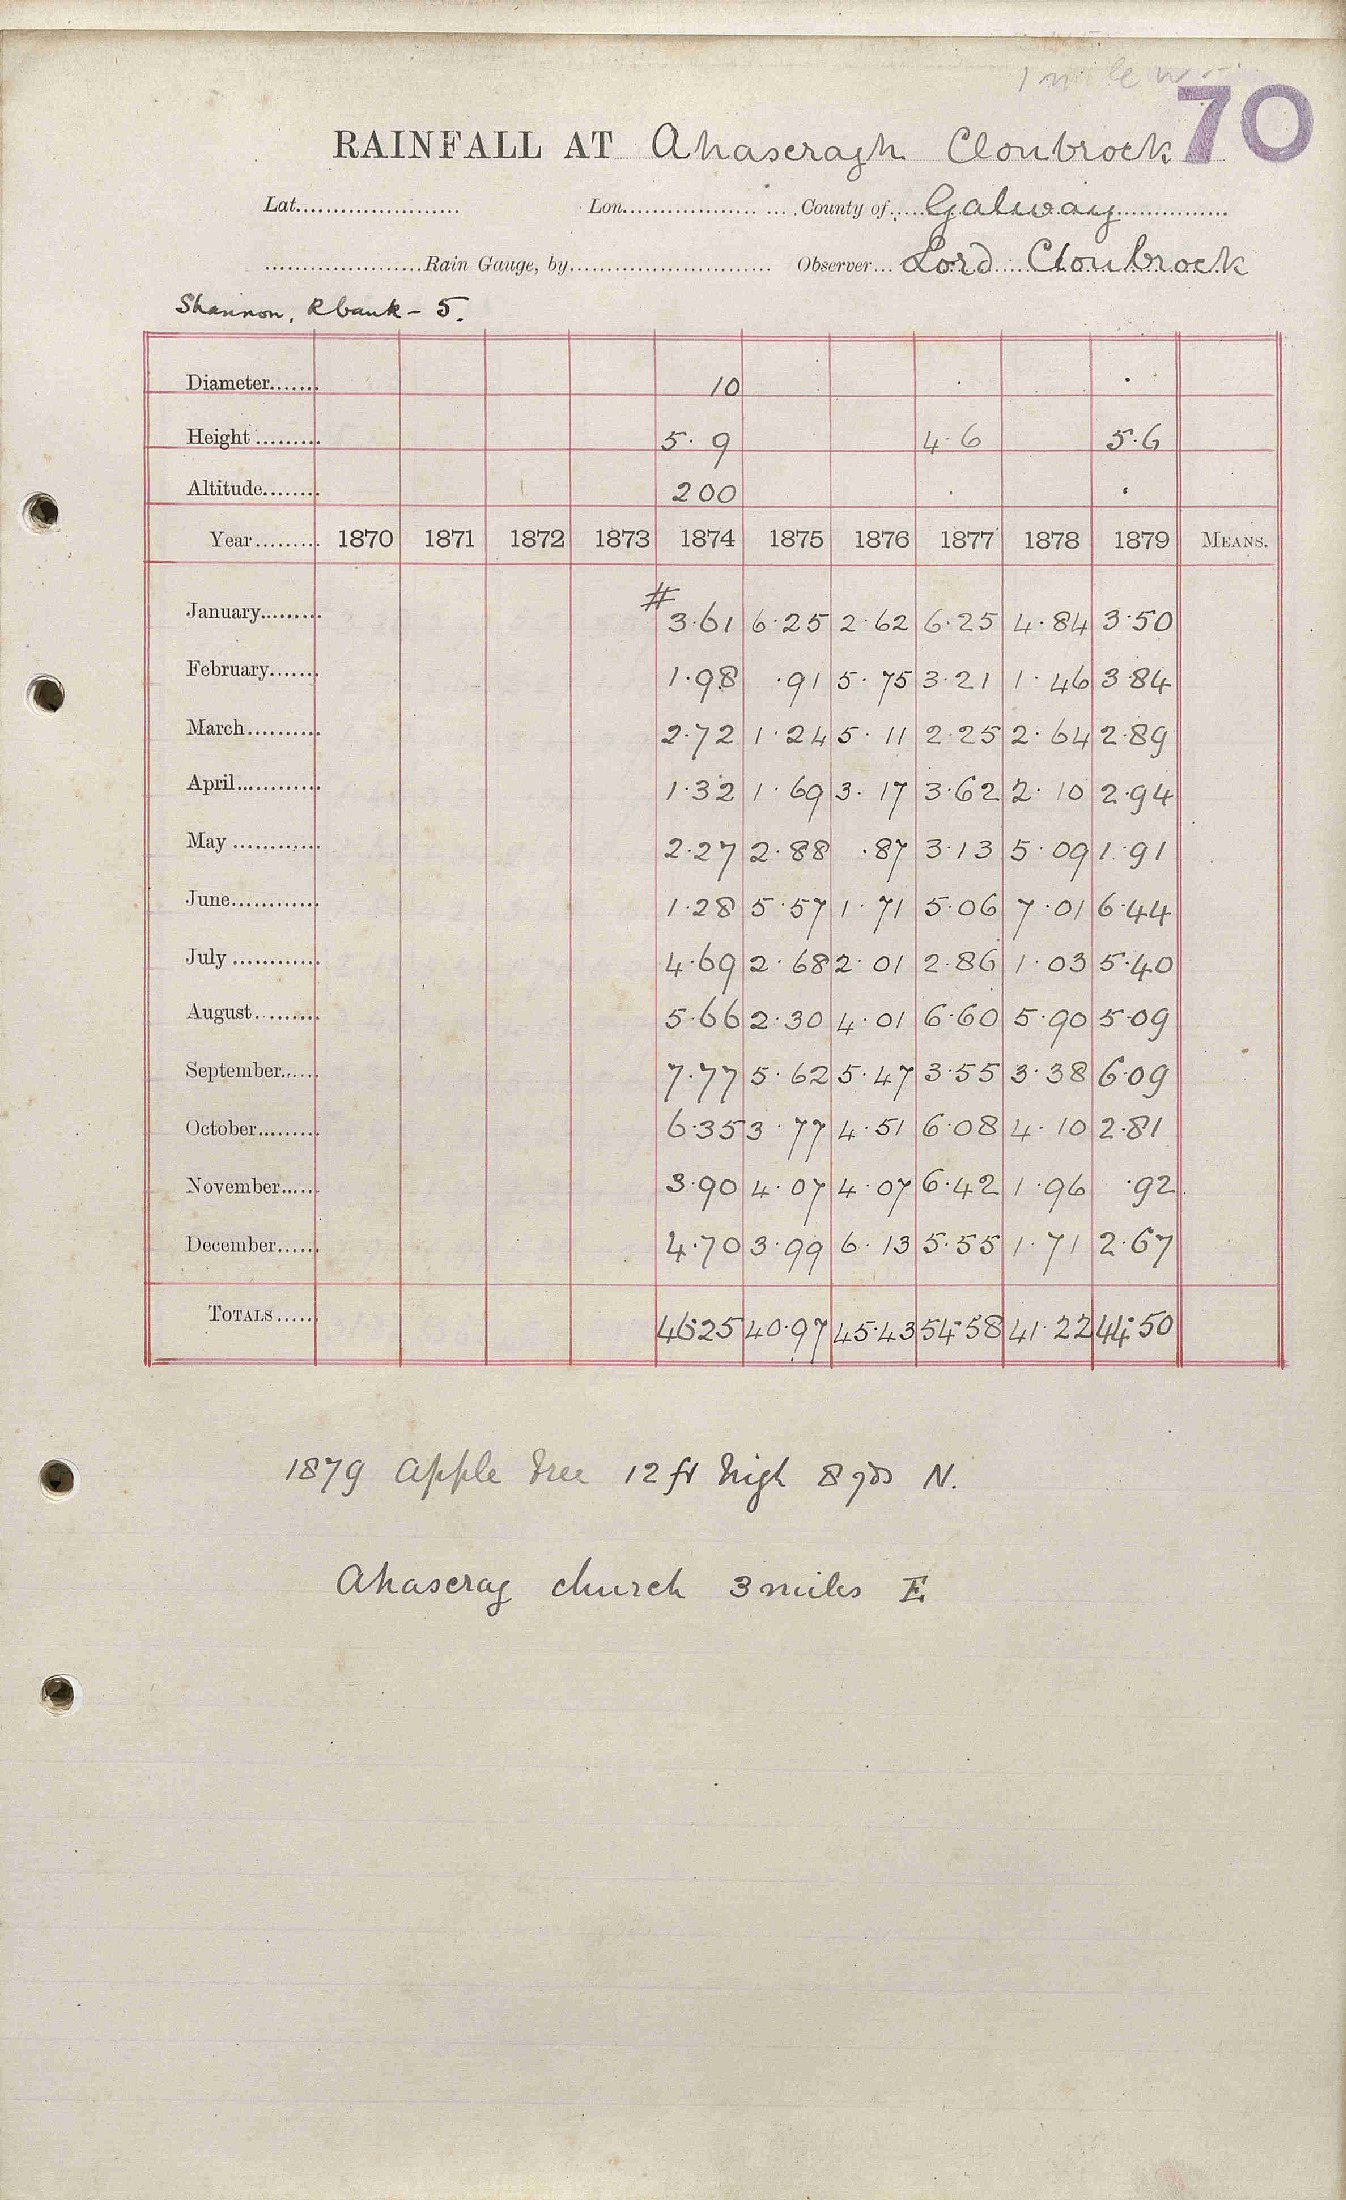 70
RAINFALL AT Ahaseragh Clonbrock
Lat...................... Lon....................... County of..... Galway
......................Rain Gauge, by........................... Observer... Lord Clonbrock
Shannon, R bank - 5.
Diameter....... 10
Height ......... 5. 9 4.6 5.6
Altitude........ 200
Year......... 1870 1871 1872 1873 1874 1875 1876 1877 1878 1879 MEANS.
#
January......... 3.61 6.25 2.62 6.25 4.84 3.50
February....... 1.98 .91 5.75 3.21 1.46 3.84
March.......... 2.72 1.24 5.11 2.25 2.64 2.89
April............ 1.32 1.69 3.17 3.62 2.10 2.94
May ............ 2.27 2.88 .87 3.13 5.09 1.91
June............ 1.28 5.57 1.71 5.06 7.01 6.44
July ............ 4.69 2.68 2.01 2.86 1.03 5.40
August......... 5.66 2.30 4.01 6.60 5.90 5.09
September...... 7.77 5.62 5.47 3.55 3.38 6.09
October......... 6.35 3.77 4.51 6.08 4.10 2.81
November...... 3.90 4.07 4.07 6.42 1.96 .92
December...... 4.70 3.99 6.13 5.55 1.71 2.67
TOTALS...... 46.25 40.97 45.43 54.58 41.22 44.50
1879 Apple Tree 12 ft high 8 yds N.
Ahascrag church 3 miles E